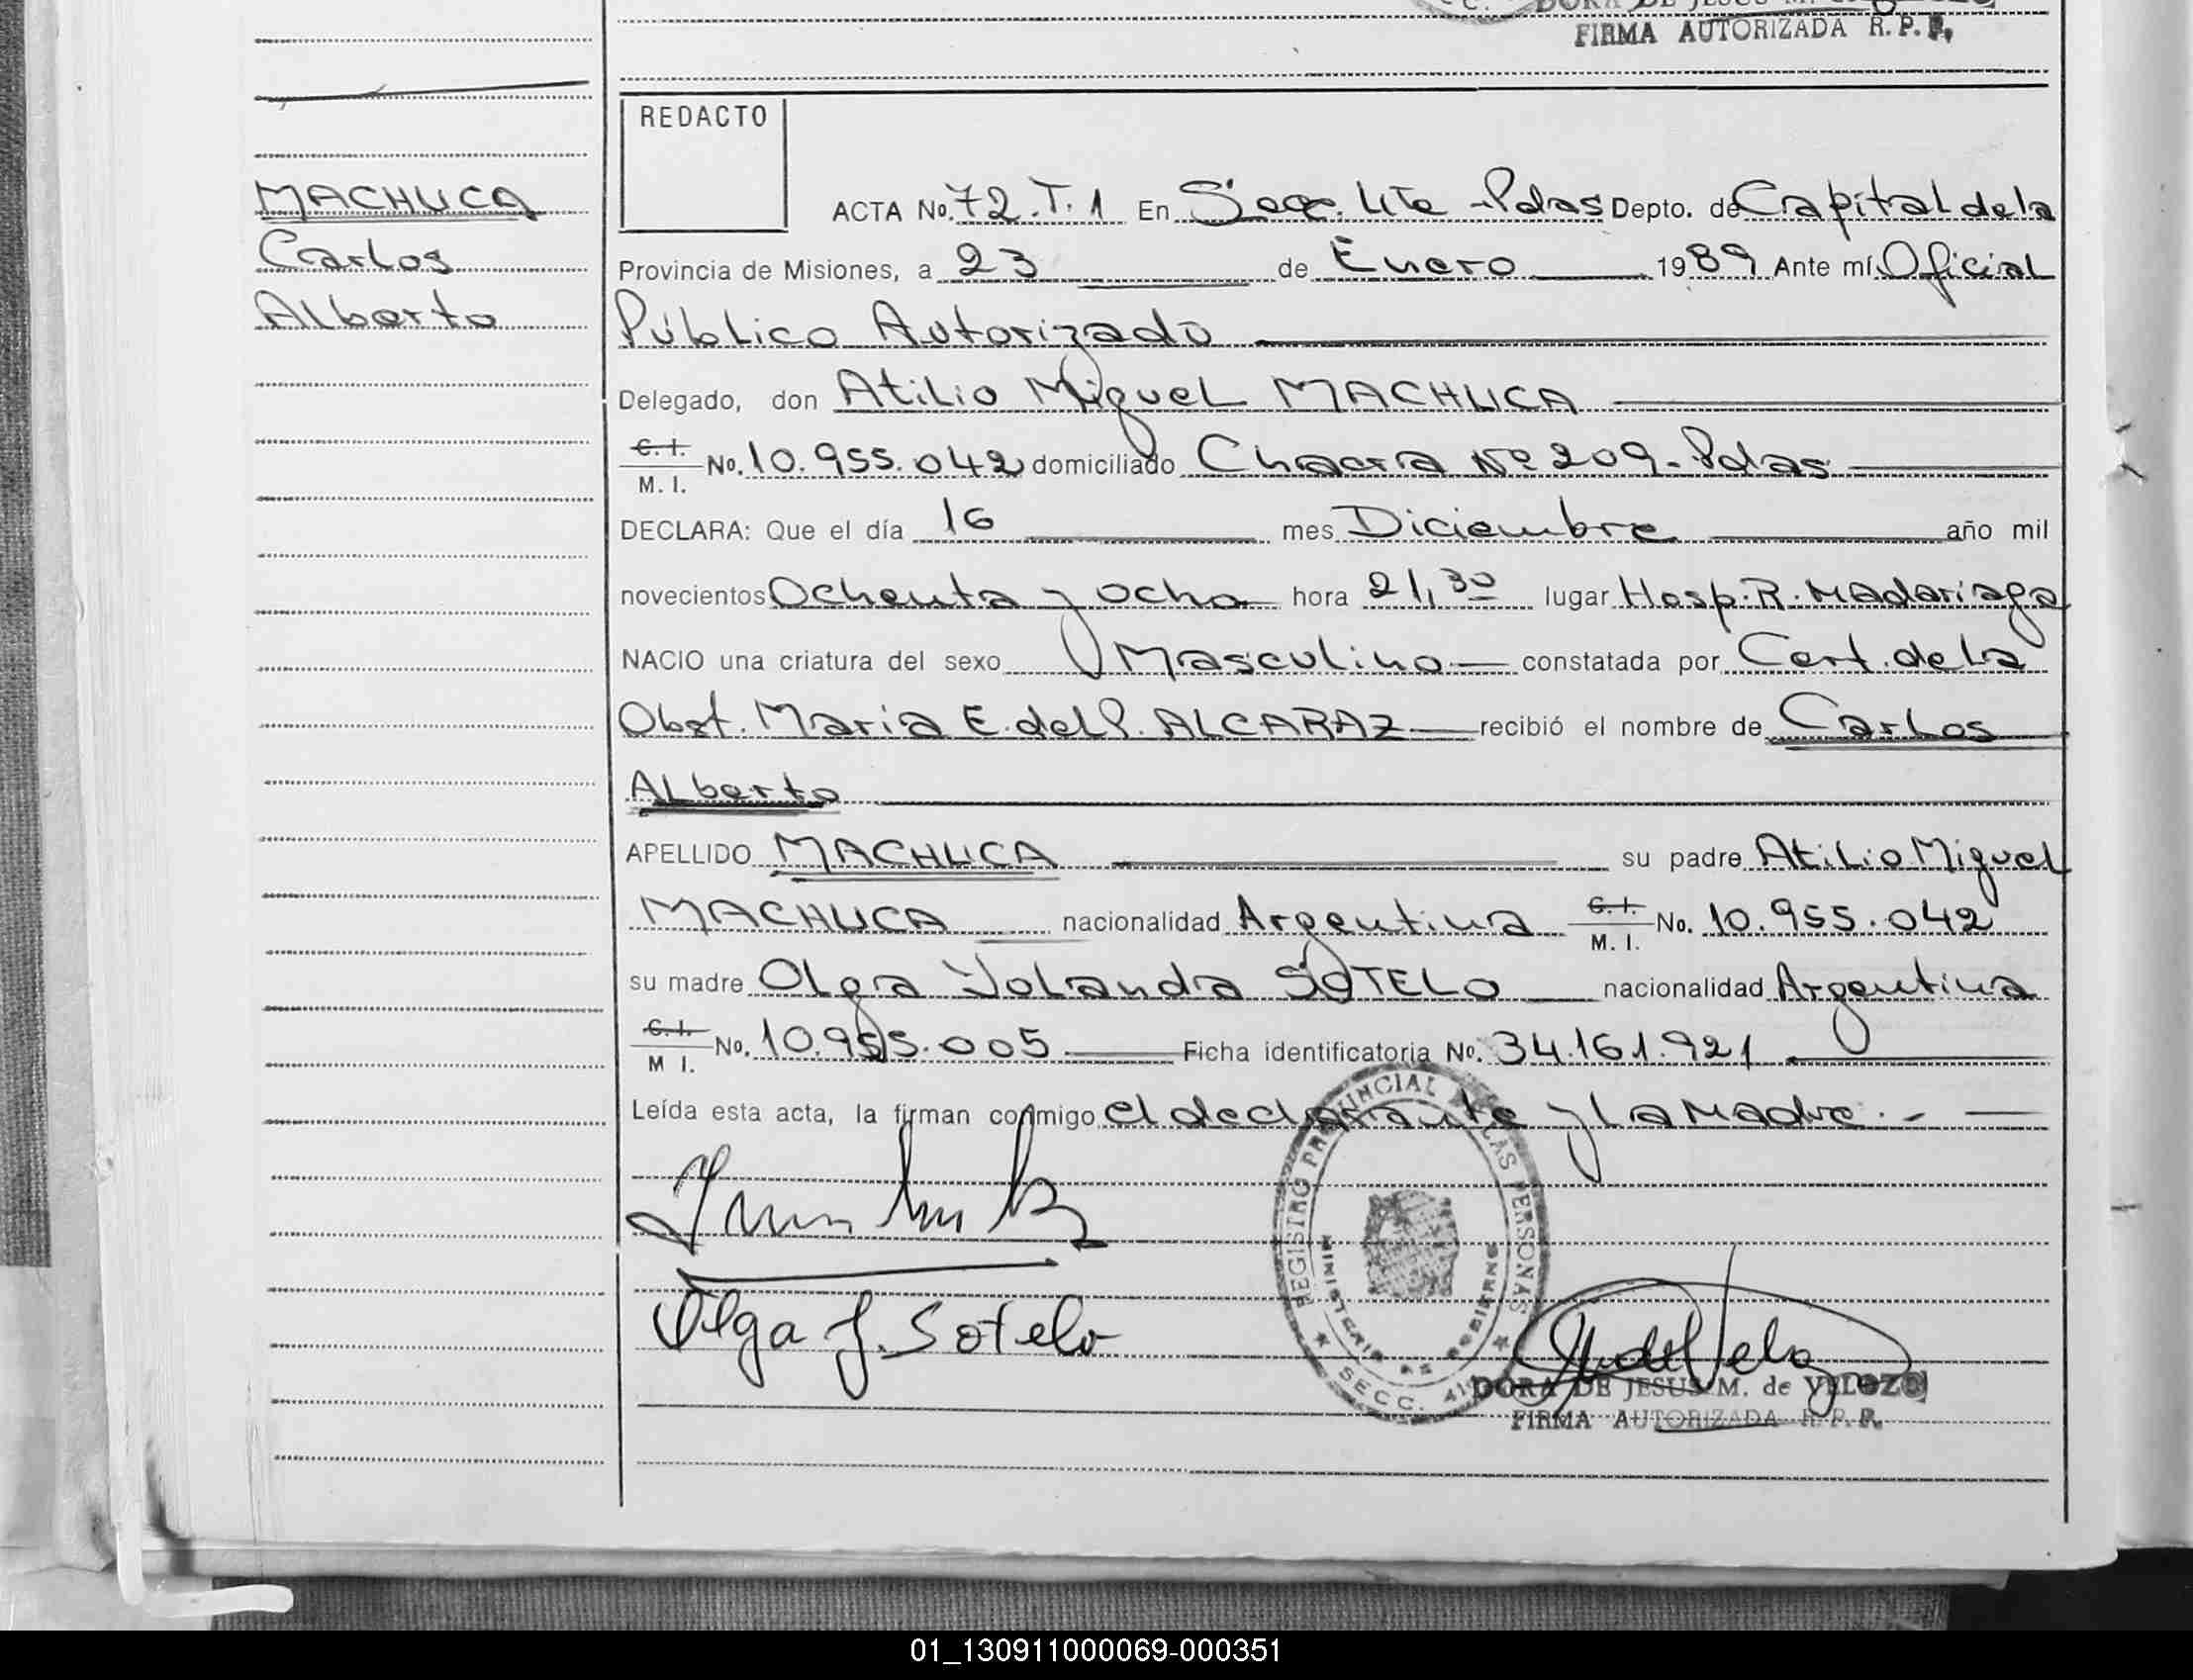 DORA DE JESUS M.
FIRMA AUTORIZADA R. P. P.
REDACTO
MACHUCA
Carlos
Alberto
ACTA No. 72.T.1 En Secc. 4ta - Pdas Depto. de Capital de la
Provincia de Misiones, a 23 de Enero 1989 Ante mí Oficial
Público Autorizado
Delegado, don Atilio Miguel MACHUCA
C. I.
M. I.
No. 10.955.042 domiciliado Chacra Nº 209 - Pdas
DECLARA: Que el día 16 mes Diciembre año mil
novecientos Ochenta y ocho hora 21,30 lugar Hosp. R. Madariaga
NACIO una criatura del sexo Masculino constatada por Cert. de La
Obst. María E. del P. ALCARAZ recibió el nombre de Carlos
Alberto
APELLIDO MACHUCA su padre Atilio Miguel
MACHUCA nacionalidad Argentina C. I. M. I. No. 10.955.042
su madre Olga Yolanda SOTELO nacionalidad Argentina
C. I. M I. No. 10.955.005 Ficha identificatoria No. 34.161.921
Leída esta acta, la firman conmigo el declarante y la Madre. -
REGISTRO PROVINCIAL DE LAS PERSONAS
MINISTERIO DE GOBIERNO
SECC.
Olga Y. Sotelo
DORA DE JESUS M. de VELOZO
FIRMA AUTORIZADA R. P. P.
01_130911000069-000351